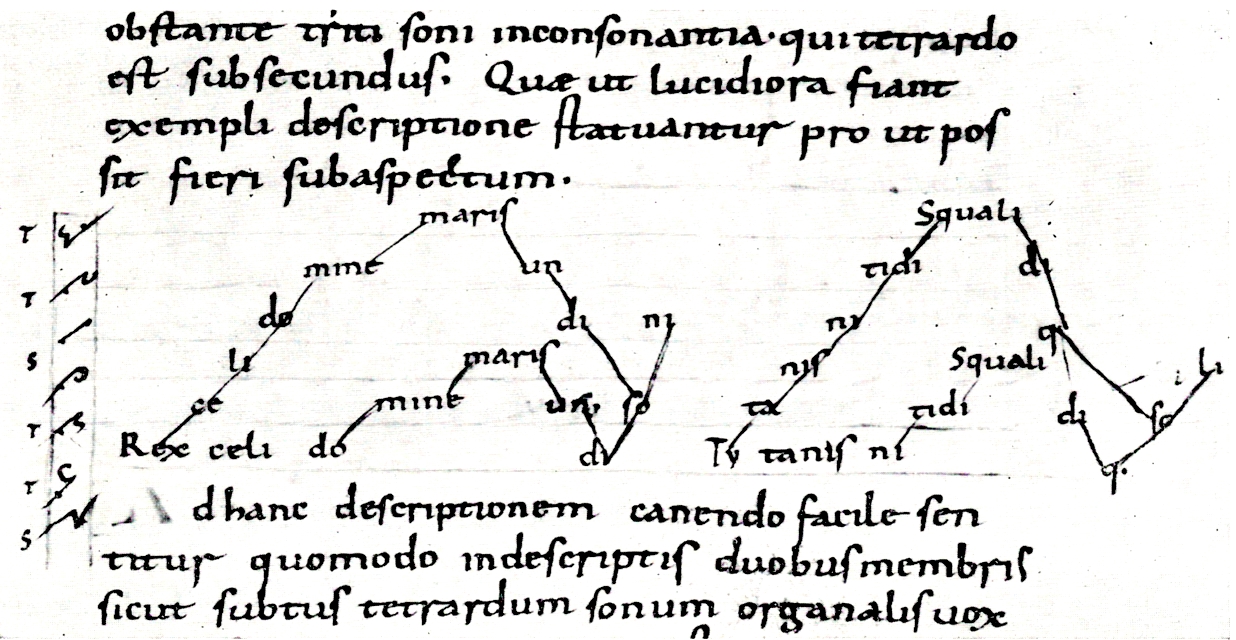 obstante triti soni inconsonantia. qui tetrardo
est subsecundus. Quæ ut lucidiora fiant
exempli descriptione statuantur pro ut pos
sit fieri subaspectum.
T maris Squali
mine un tidi di
T
do di ni ni q
S li maris nis Squali li
ce mine un so ta tidi di so
T
Rex celi do di Ty tanis ni q.
T
S
d hanc descriptionem canendo facile sen
titur quomodo indescriptis duobus membris
sicut subtus tetrardum sonum organalis uox